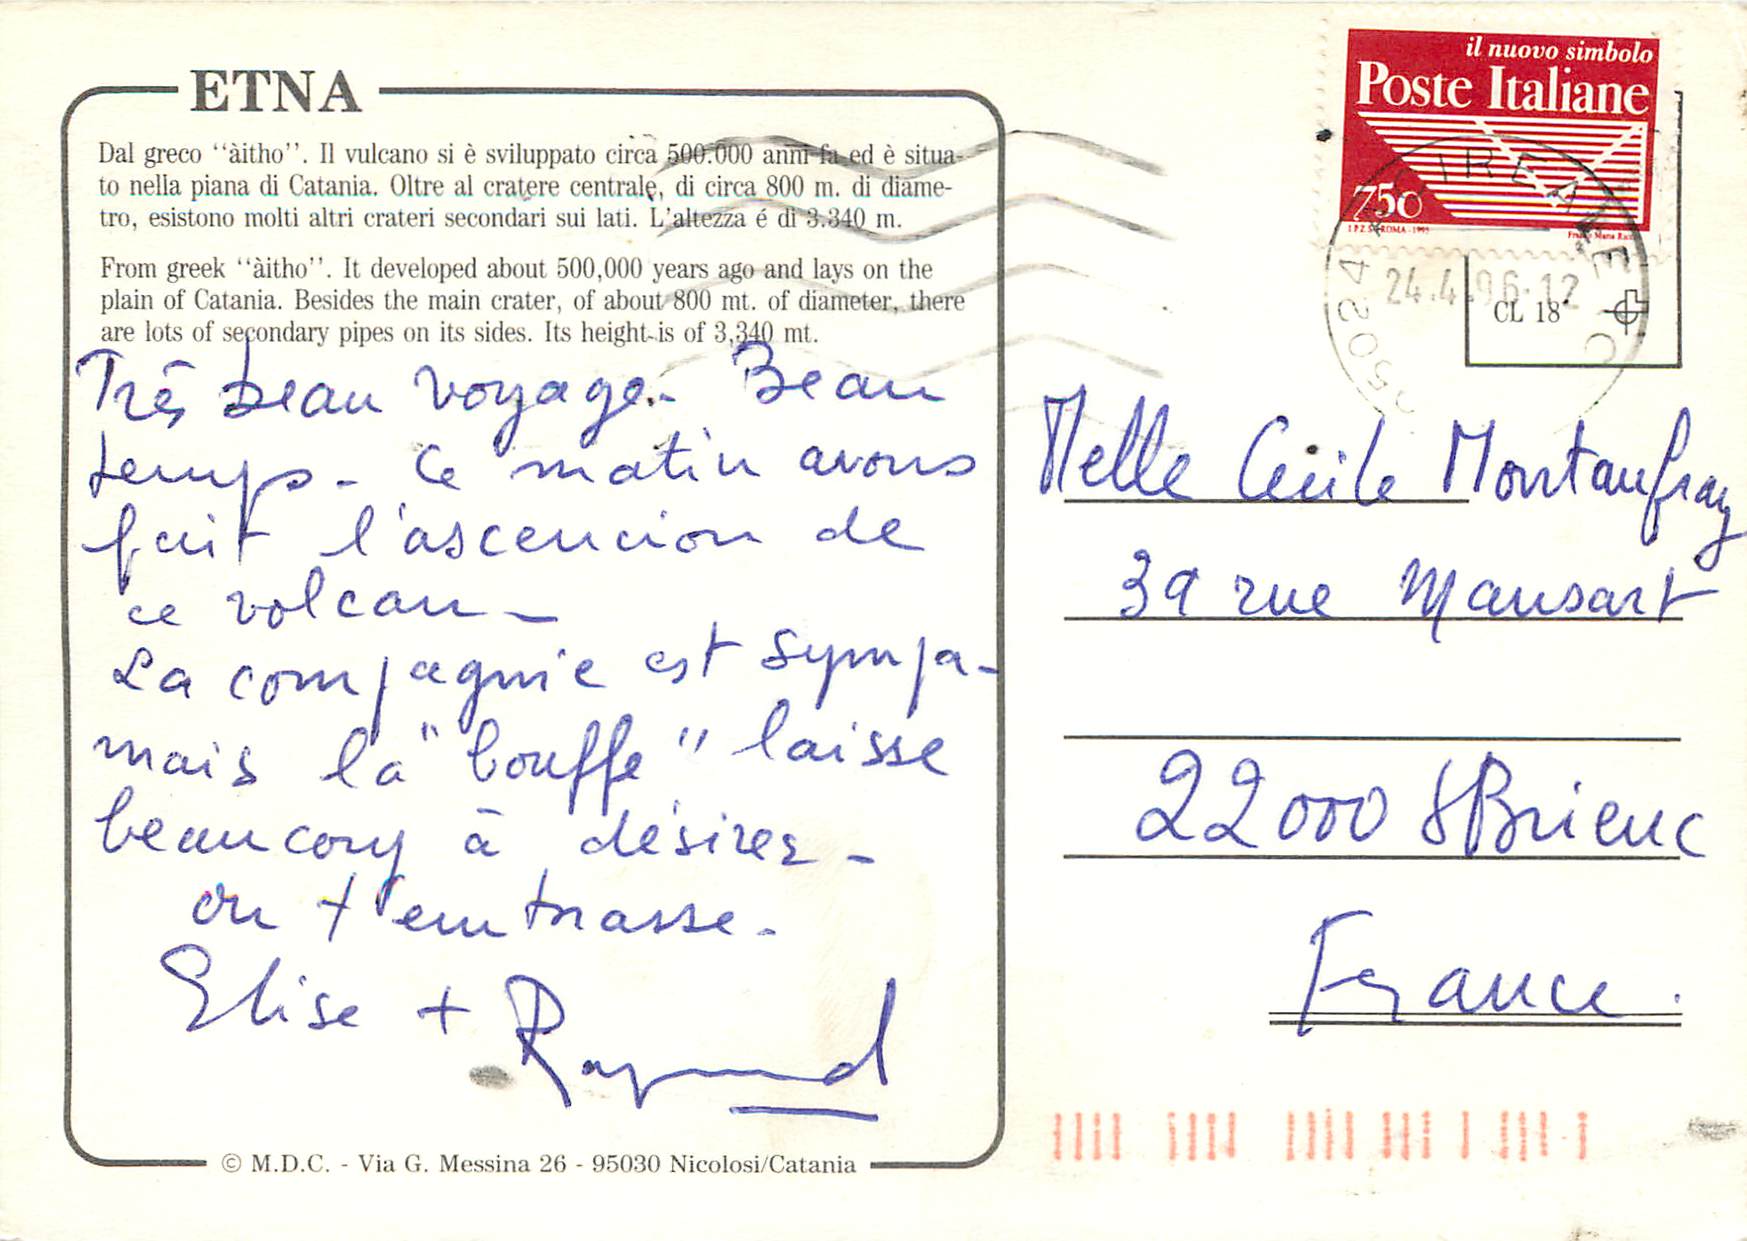 ETNA
Dal greco ‘‘àitho’’. Il vulcano si è sviluppato circa 500.000 anni fa ed è situa-
to nella piana di Catania. Oltre al cratere centrale, di circa 800 m. di diame-
tro, esistono molti altri crateri secondari sui lati. L'altezza é di 3.340 m.
From greek ‘‘àitho’’. It developed about 500,000 years ago and lays on the
plain of Catania. Besides the main crater, of about 800 mt. of diameter, there
are lots of secondary pipes on its sides. Its height is of 3,340 mt.
Très beau voyage. Beau
temps - Ce matin avons
fait l'ascencion de
ce volcan -
La compagnie est sympa -
mais la "bouffe" laisse
beaucoup à désirer -
on t'embrasse -
Elise + Raymond
© M.D.C. - Via G. Messina 26 - 95030 Nicolosi/Catania
il nuovo simbolo
Poste Italiane
750
I.P.Z.S. ROMA - 1995
ACIREALE C
95024
24.4.96-12
CL 18
Melle Cécile Montaufray
39 rue Mansart
22000 St Brieuc
France.